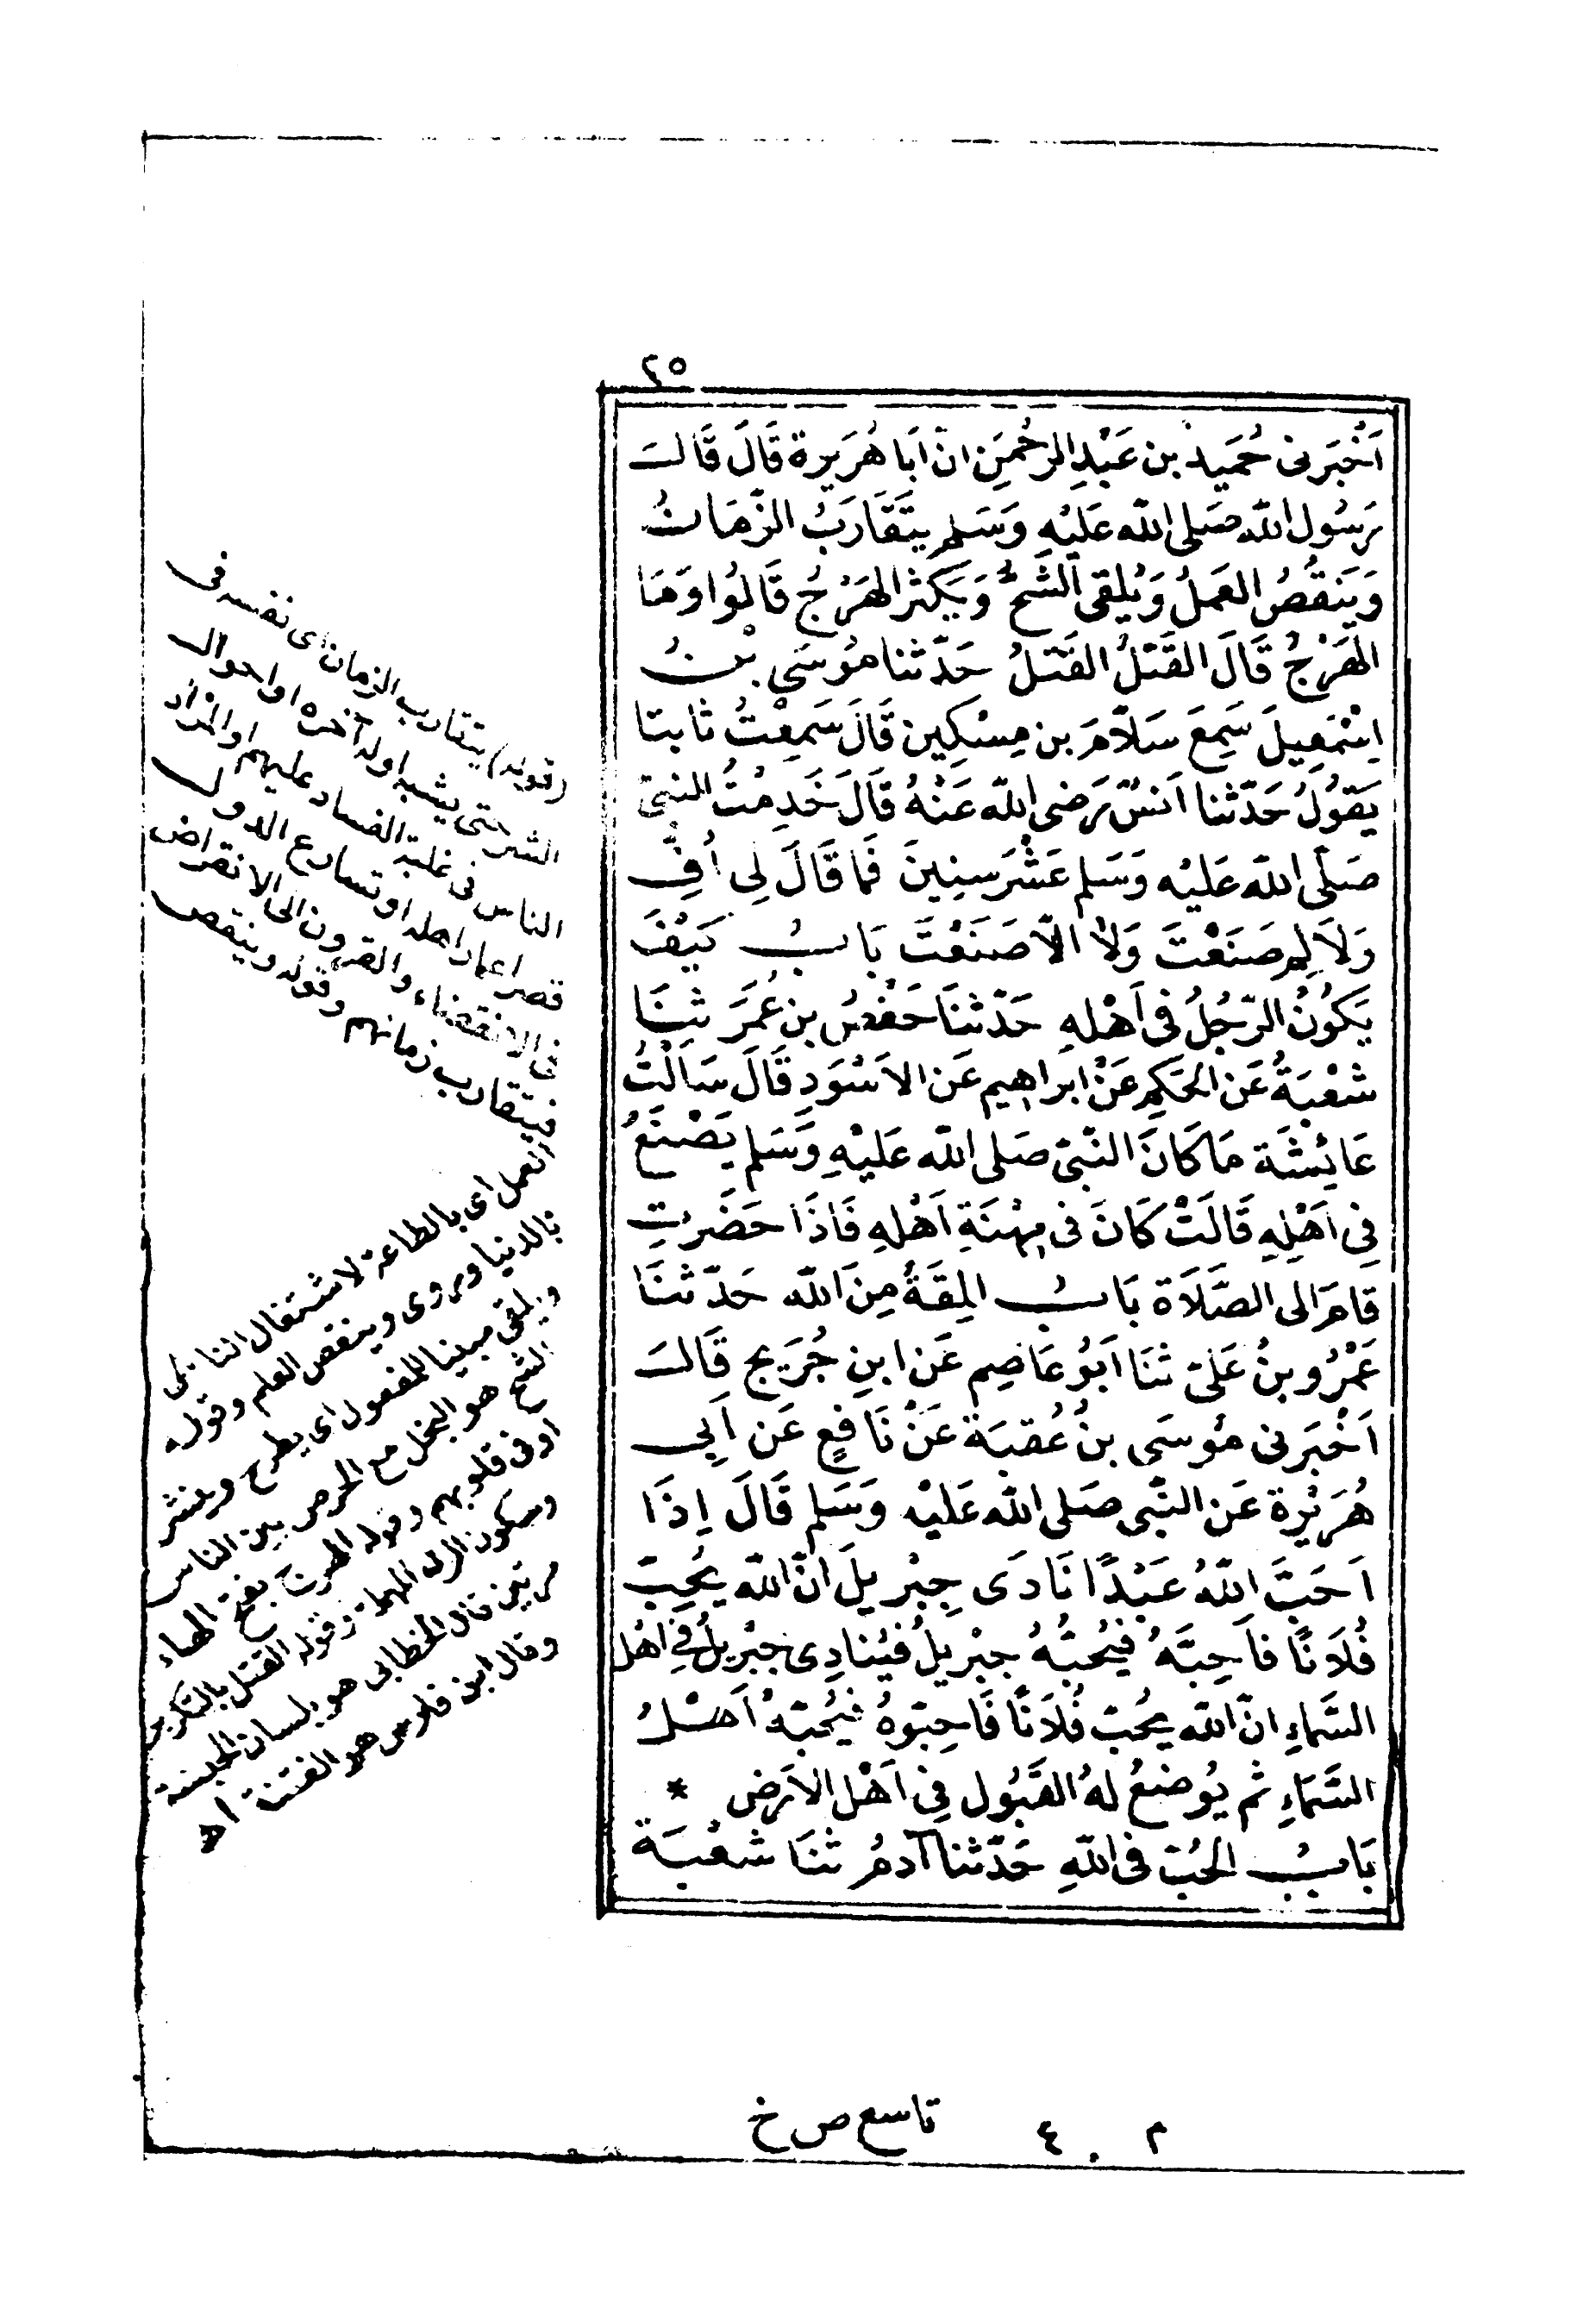 ٢٥
اَخْبَرَنى حُمَيد بن عَبْدِ الرحْمَنِ انّ اَبَا هُرَيرة قَالَ قَالَ
رَسُول الله صَلى الله عَلَيْهِ وَسَلم يَتَقَارَبُ الزّمَانُ
وَيَنقُصُ العَمَلُ وَيُلقى الشّحُّ وَيَكثر الهَرْجُ قَالُوا وَمَا
الهَرْجُ قَالَ القَتْلُ القَتْلُ حَدّثنا مُوسَى بْنُ
اِسْمَعِيلَ سَمِعَ سَلاّمَ بن مِسْكِين قَالَ سَمِعْتُ ثابتا
يَقوُلُ حَدّثنا اَنسٌ رَضى الله عَنْهُ قَالَ خَدِمْتُ النبىّ
صَلّى الله عَليْه وَسَلم عَشْرَ سِنِينَ فَما قَالَ لِى اُفٍّ
وَلاَ لِم صَنَعْتَ وَلاَ الاّ صَنَعْتَ بَابُ كَيْفَ
يَكُونُ الرّجُلُ فى اَهْلهِ حَدّثنَا حَفْصُ بن عُمَرَ ثنَا
شعْبَةُ عَن الحَكِمِ عَنْ ابراهيم عَن الاَسْوَدِ قَالَ سَاَلْتُ
عَائِشَة مَا كَانَ النّبىّ صَلى الله عَليْهِ وَسَلم يَصْنَعُ
فِى اَهْلِهِ قَالَتْ كَانَ فى مِهْنَةِ اَهْلهِ فَاذَا حَضَرَتِ
قامَ الى الصّلاَة بَابُ المِقَةُ مِنَ الله حَدّثنَا
عَمْرُو بنُ عَلىّ ثنَا اَبُو عَاصِم عَن ابنِ جُرَيج قَالَ
اَخْبَرَنى مُوسَى بنُ عُقبَة عَنْ نَافِعٍ عَن اَبِى
هُرَيْرة عَن النّبى صَلى الله عَليْه وَسَلم قَالَ اِذَا
اَحَبّ اللهُ عَبْدًا نَادَى جِبْريلَ انّ الله يُحِبّ
فُلاَنًا فاَحِبَّهُ فيُحبّهُ جبْريلُ فيُنادِى جبْريلُ فِى اَهْل
السَّمَاءِ انّ الله يحُبّ فُلاَنًا فَاحِبّوهُ فيُحبّهُ اَهْلُ
السَّمَاءِ ثم يُوضعُ لهُ القَبُول فِى اَهْل الاَرَض *
بَابُ الحُبّ فى اللهِ حَدّثنا آدمُ ثنَا شعْبَة
(قوله) يتقارب الزمان اى نفسه فى
الشر حتى يشبه اوله آخره او احوال
الناس فى غلبة الفساد عليهم او المراد
قصر اعمار اهله او تسارع الدول
فى الانقضاء والقرون الى الانقراض
فيتقارب زمانهم وقوله وينقص
العمل اى بالطاعة لاشتغال الناس
بالدنيا ويروى وينقص العلم وقوله
ويلقى مبنيا للمفعول اى يطرح وينشر
الشح هو البخل مع الحرص بين الناس
او فى قلوبهم وقوله الهرج بفتح الهاء
وسكون الراى المهملة وقوله القتل بالتكرير
مرتين قال الخطابى هو بلسان الحبشة
وقال ابن فارس هو الفتنة اه
٢ . ٤ تاسع ص خ